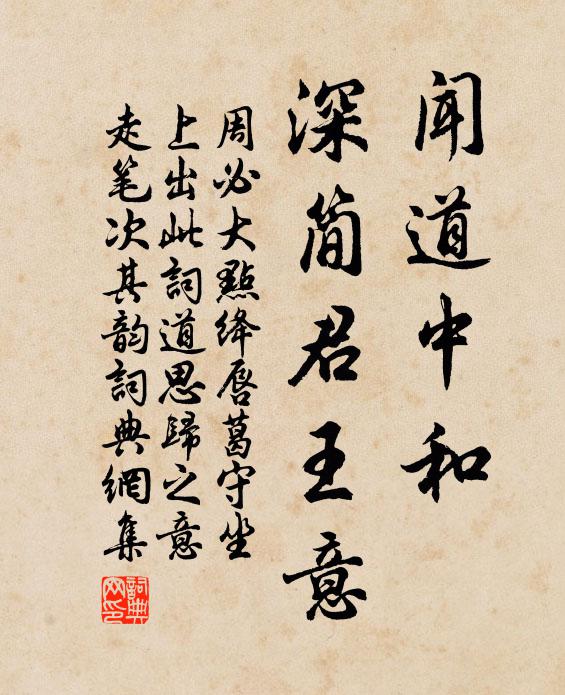 闻道中和
深简君王意
周必大點绛唇葛守坐
上出此詞道思歸之意
走笔次其韵詞典網集
詞典
网印